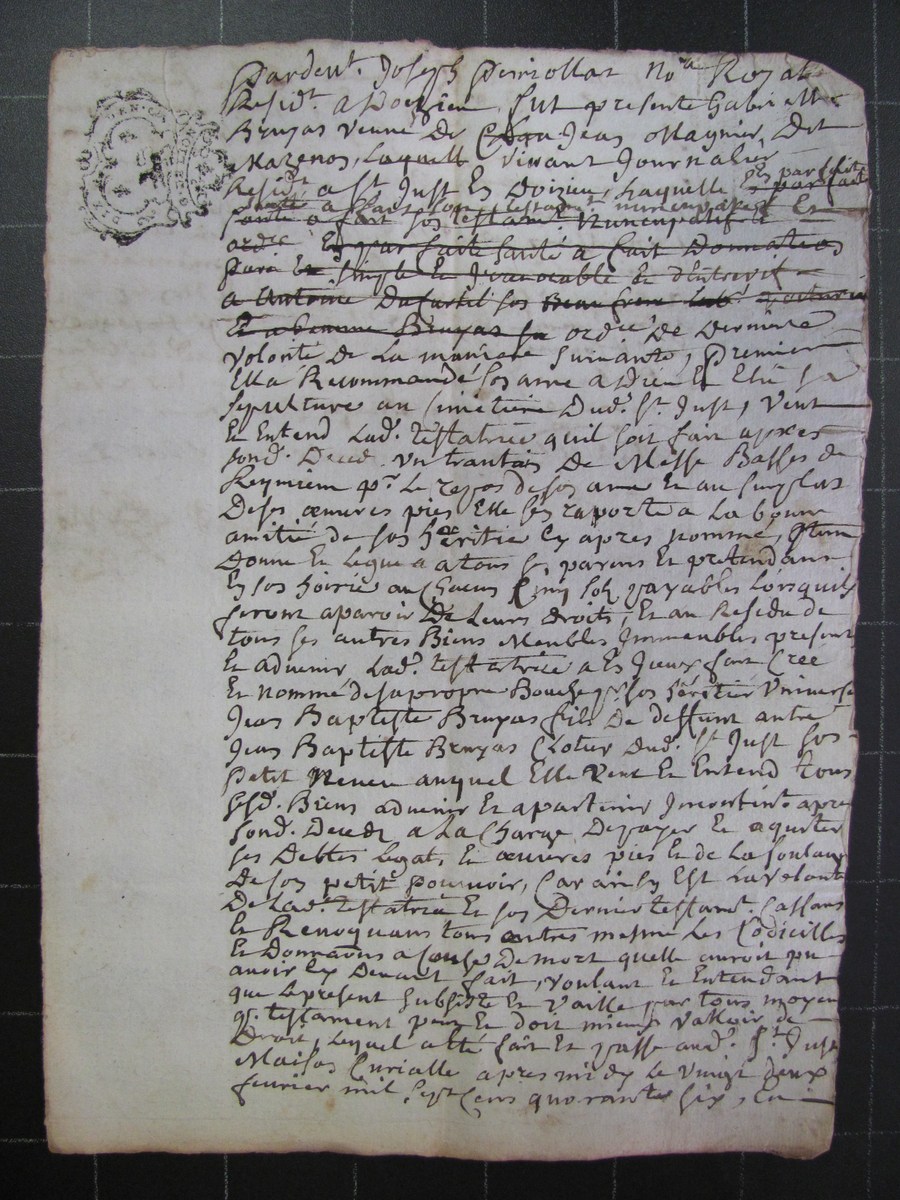 Pardevt. Joseph Perriollat No.re Royal
Residt. a Doizieu fut presente Gabrielle
Bruyas veuve De Jean Magnier, Dit
Mazenod, Laquelle vivant Journalier
Residt. a St. Just En Doizieu, Laquelle En parfaite
santé a fait son testamt. nuncupatif Et
ordce. En parfaite santé a fait Donnation
pure Et simple Et Irrevocable Et D'entrevifs
a Antoine son Beau frere
Bruyas sa ordce. De Derniere
volonté De La maniere suivante, Premier
Ella Recommandé son ame a Dieu Et Elu sa
sepulture au simetiere Dud. St. Just, Veut
Et Entend Lad. testatrice quil soit fait apres
sond. Deced. un trantain De Messe Basses de
Requiem pr. Le repos de son ame Et au surplus
De ses œuvres pies Elle s'en raporte a La bonne
amitié de son héritié Cy apres nommé, Item
Donne Et Legue a a tous ses parens Et pretendans
En son hoirie au Chacun Cinq sols payables Lorsquils
feront aparoir De Leurs droits, Et au Residu de
tous ses autres Biens Meubles Immeubles present
Et advenir Lad. testatrice a Es Jceux fait Créé
Et nommé de sa propre Bouche pr. son héritier Universel
Jean Baptiste Bruyas fils De deffunt autre
Jean Baptiste Bruyas Clotier Dud. St. Just son
Petit Neveu auquel Elle Veut Et Entend tous
ssd. Biens advenir Et apartenir Incontint. apres
sond. Deced. a La Charge De payer Et aquiter
ses Debtes Legats Et œuvres pies Et de La soulager
De son petit pouvoir, Car ainsy Est La volonté
De Lad. testatrice Et son Dernier testamt. Cassant
Et Revoquant tous autres mesme Les Codicilles
Et Donnations a cause De mort quelle auroit pu
avoir Cy Devant fait, voulant Et Entendant
que Le present subsiste Et Vaille par tous moyens
qe. testament peut Et doit mieux Valloir de
Droit, Lequel a été fait Et passé aud. St. Just
Maison Curialle apres midy Le vingt deux
fevrier mil sept Cens quarante six, En